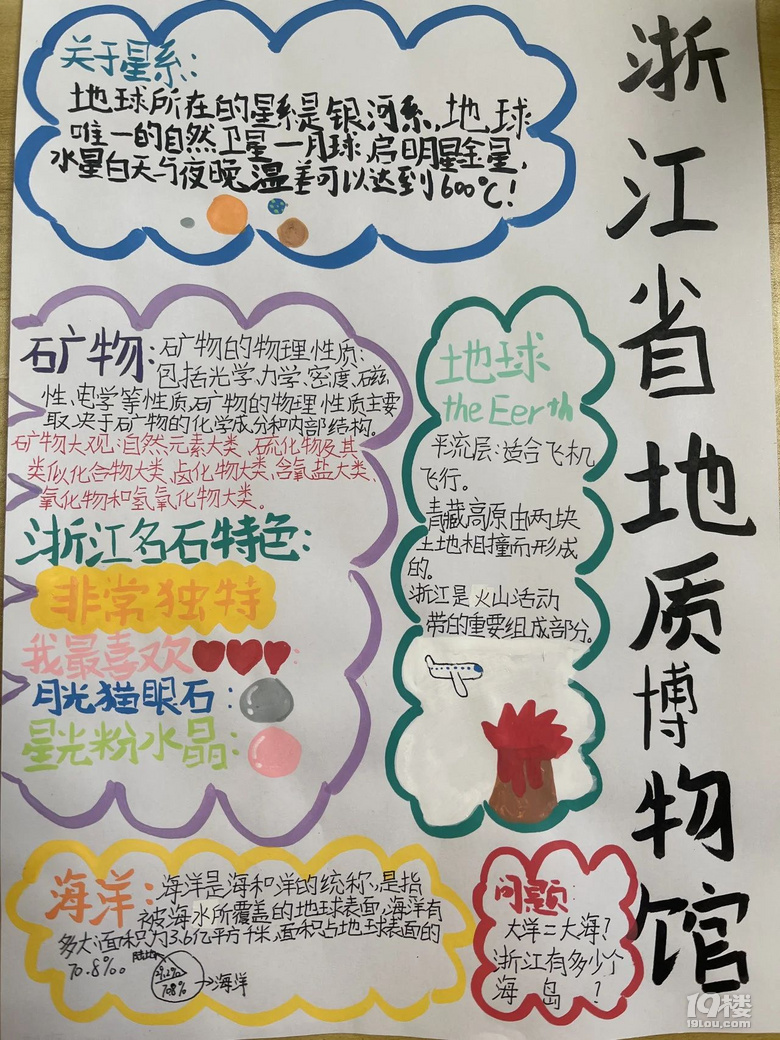 浙江省地质博物馆
关于星系:
地球所在的星系是银河系,地球
唯一的自然卫星一月球,启明星金星,
水星白天与夜晚温差可以达到600℃!
石广物:石广物的物理性质:
包括光学、力学、密度、磁
性、电学等性质,矿物的物理性质主要
取决于石广物的化学成分和内部结构。
矿物大观:自然元素大类、硫化物及其
类似化合物大类、卤化物大类、含氧盐大类、
氧化物和氢氧化物大类。
浙江名石特色:
非常独特
我最喜欢:
月光猫眼石:
星光粉水晶:
地球
the Eerth
平流层:适合飞机
飞行。
青藏高原由两块
土地相撞而形成
的。
浙江是火山活动
带的重要组成部分。
海洋:海洋是海和洋的统称,是指
被海水所覆盖的地球表面,海洋有
多大:面积为3.6亿平方千米,面积占地球表面的
70.8%。
陆地
29.2%
70.8%
→海洋
问题
大洋二大海?
浙江有多少个
海岛?
19楼
19lou.com